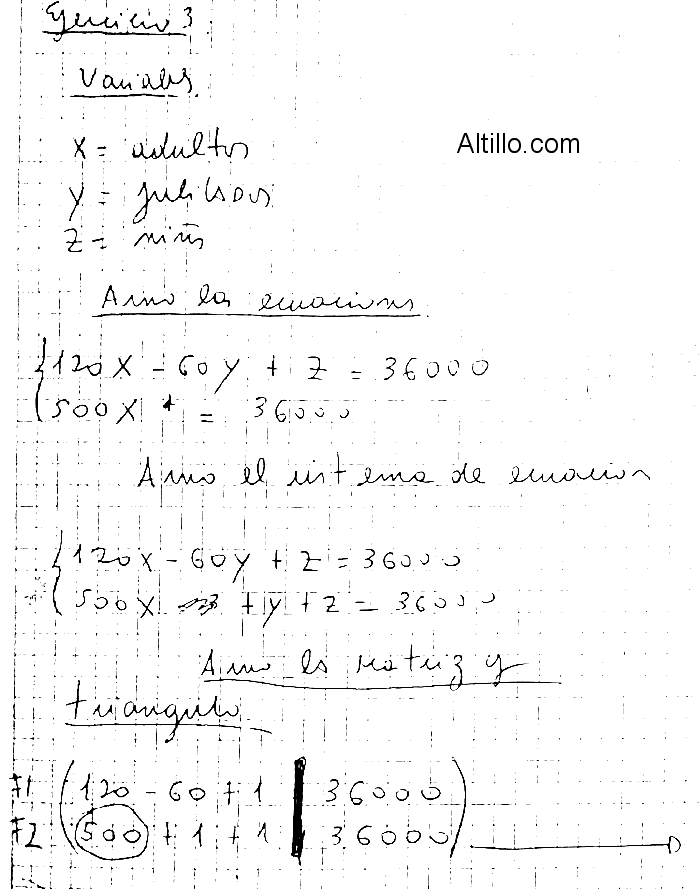 Ejercicio 3
Variables
Altillo.com
x = adultos
y = jubilados
z = niños
Armo las ecuaciones
120x - 60y + z = 36000
500x + = 36000
Armo el sistema de ecuacion
120x - 60y + z = 36000
500x + y + z = 36000
Armo la matriz y
triangulo
F1 ( 120 - 60 + 1 | 36000 )
F2 ( 500 + 1 + 1 | 36000 )